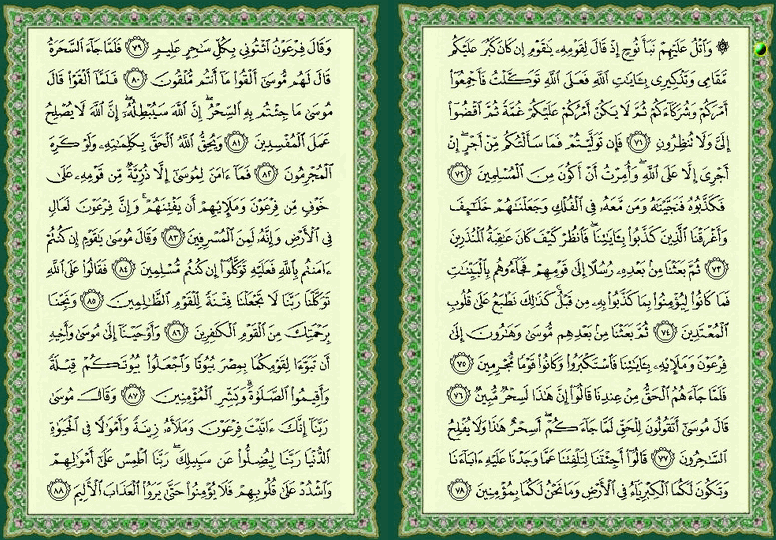 ۞ وَٱتْلُ عَلَيْهِمْ نَبَأَ نُوحٍ إِذْ قَالَ لِقَوْمِهِۦ يَٰقَوْمِ إِن كَانَ كَبُرَ عَلَيْكُم
مَّقَامِى وَتَذْكِيرِى بِـَٔايَٰتِ ٱللَّهِ فَعَلَى ٱللَّهِ تَوَكَّلْتُ فَأَجْمِعُوٓا۟
أَمْرَكُمْ وَشُرَكَآءَكُمْ ثُمَّ لَا يَكُنْ أَمْرُكُمْ عَلَيْكُمْ غُمَّةً ثُمَّ ٱقْضُوٓا۟
إِلَىَّ وَلَا تُنظِرُونِ ٧١ فَإِن تَوَلَّيْتُمْ فَمَا سَأَلْتُكُم مِّنْ أَجْرٍ ۖ إِنْ
أَجْرِىَ إِلَّا عَلَى ٱللَّهِ ۖ وَأُمِرْتُ أَنْ أَكُونَ مِنَ ٱلْمُسْلِمِينَ ٧٢
فَكَذَّبُوهُ فَنَجَّيْنَٰهُ وَمَن مَّعَهُۥ فِى ٱلْفُلْكِ وَجَعَلْنَٰهُمْ خَلَٰٓئِفَ
وَأَغْرَقْنَا ٱلَّذِينَ كَذَّبُوا۟ بِـَٔايَٰتِنَا ۖ فَٱنظُرْ كَيْفَ كَانَ عَٰقِبَةُ ٱلْمُنذَرِينَ
٧٣ ثُمَّ بَعَثْنَا مِنۢ بَعْدِهِۦ رُسُلًا إِلَىٰ قَوْمِهِمْ فَجَآءُوهُم بِٱلْبَيِّنَٰتِ
فَمَا كَانُوا۟ لِيُؤْمِنُوا۟ بِمَا كَذَّبُوا۟ بِهِۦ مِن قَبْلُ ۚ كَذَٰلِكَ نَطْبَعُ عَلَىٰ قُلُوبِ
ٱلْمُعْتَدِينَ ٧٤ ثُمَّ بَعَثْنَا مِنۢ بَعْدِهِم مُّوسَىٰ وَهَٰرُونَ إِلَىٰ
فِرْعَوْنَ وَمَلَإِي۟هِۦ بِـَٔايَٰتِنَا فَٱسْتَكْبَرُوا۟ وَكَانُوا۟ قَوْمًا مُّجْرِمِينَ ٧٥
فَلَمَّا جَآءَهُمُ ٱلْحَقُّ مِنْ عِندِنَا قَالُوٓا۟ إِنَّ هَٰذَا لَسِحْرٌ مُّبِينٌ ٧٦
قَالَ مُوسَىٰٓ أَتَقُولُونَ لِلْحَقِّ لَمَّا جَآءَكُمْ ۖ أَسِحْرٌ هَٰذَا وَلَا يُفْلِحُ
ٱلسَّٰحِرُونَ ٧٧ قَالُوٓا۟ أَجِئْتَنَا لِتَلْفِتَنَا عَمَّا وَجَدْنَا عَلَيْهِ ءَابَآءَنَا
وَتَكُونَ لَكُمَا ٱلْكِبْرِيَآءُ فِى ٱلْأَرْضِ وَمَا نَحْنُ لَكُمَا بِمُؤْمِنِينَ ٧٨
وَقَالَ فِرْعَوْنُ ٱئْتُونِى بِكُلِّ سَٰحِرٍ عَلِيمٍ ٧٩ فَلَمَّا جَآءَ ٱلسَّحَرَةُ
قَالَ لَهُم مُّوسَىٰٓ أَلْقُوا۟ مَآ أَنتُم مُّلْقُونَ ٨٠ فَلَمَّآ أَلْقَوْا۟ قَالَ
مُوسَىٰ مَا جِئْتُم بِهِ ٱلسِّحْرُ ۖ إِنَّ ٱللَّهَ سَيُبْطِلُهُۥٓ ۖ إِنَّ ٱللَّهَ لَا يُصْلِحُ
عَمَلَ ٱلْمُفْسِدِينَ ٨١ وَيُحِقُّ ٱللَّهُ ٱلْحَقَّ بِكَلِمَٰتِهِۦ وَلَوْ كَرِهَ
ٱلْمُجْرِمُونَ ٨٢ فَمَآ ءَامَنَ لِمُوسَىٰٓ إِلَّا ذُرِّيَّةٌ مِّن قَوْمِهِۦ عَلَىٰ
خَوْفٍ مِّن فِرْعَوْنَ وَمَلَإِي۟هِمْ أَن يَفْتِنَهُمْ ۚ وَإِنَّ فِرْعَوْنَ لَعَالٍ
فِى ٱلْأَرْضِ وَإِنَّهُۥ لَمِنَ ٱلْمُسْرِفِينَ ٨٣ وَقَالَ مُوسَىٰ يَٰقَوْمِ إِن كُنتُمْ
ءَامَنتُم بِٱللَّهِ فَعَلَيْهِ تَوَكَّلُوٓا۟ إِن كُنتُم مُّسْلِمِينَ ٨٤ فَقَالُوا۟ عَلَى ٱللَّهِ
تَوَكَّلْنَا رَبَّنَا لَا تَجْعَلْنَا فِتْنَةً لِّلْقَوْمِ ٱلظَّٰلِمِينَ ٨٥ وَنَجِّنَا
بِرَحْمَتِكَ مِنَ ٱلْقَوْمِ ٱلْكَٰفِرِينَ ٨٦ وَأَوْحَيْنَآ إِلَىٰ مُوسَىٰ وَأَخِيهِ
أَن تَبَوَّءَا لِقَوْمِكُمَا بِمِصْرَ بُيُوتًا وَٱجْعَلُوا۟ بُيُوتَكُمْ قِبْلَةً
وَأَقِيمُوا۟ ٱلصَّلَوٰةَ ۗ وَبَشِّرِ ٱلْمُؤْمِنِينَ ٨٧ وَقَالَ مُوسَىٰ
رَبَّنَآ إِنَّكَ ءَاتَيْتَ فِرْعَوْنَ وَمَلَأَهُۥ زِينَةً وَأَمْوَٰلًا فِى ٱلْحَيَوٰةِ
ٱلدُّنْيَا رَبَّنَا لِيُضِلُّوا۟ عَن سَبِيلِكَ ۖ رَبَّنَا ٱطْمِسْ عَلَىٰٓ أَمْوَٰلِهِمْ
وَٱشْدُدْ عَلَىٰ قُلُوبِهِمْ فَلَا يُؤْمِنُوا۟ حَتَّىٰ يَرَوُا۟ ٱلْعَذَابَ ٱلْأَلِيمَ ٨٨